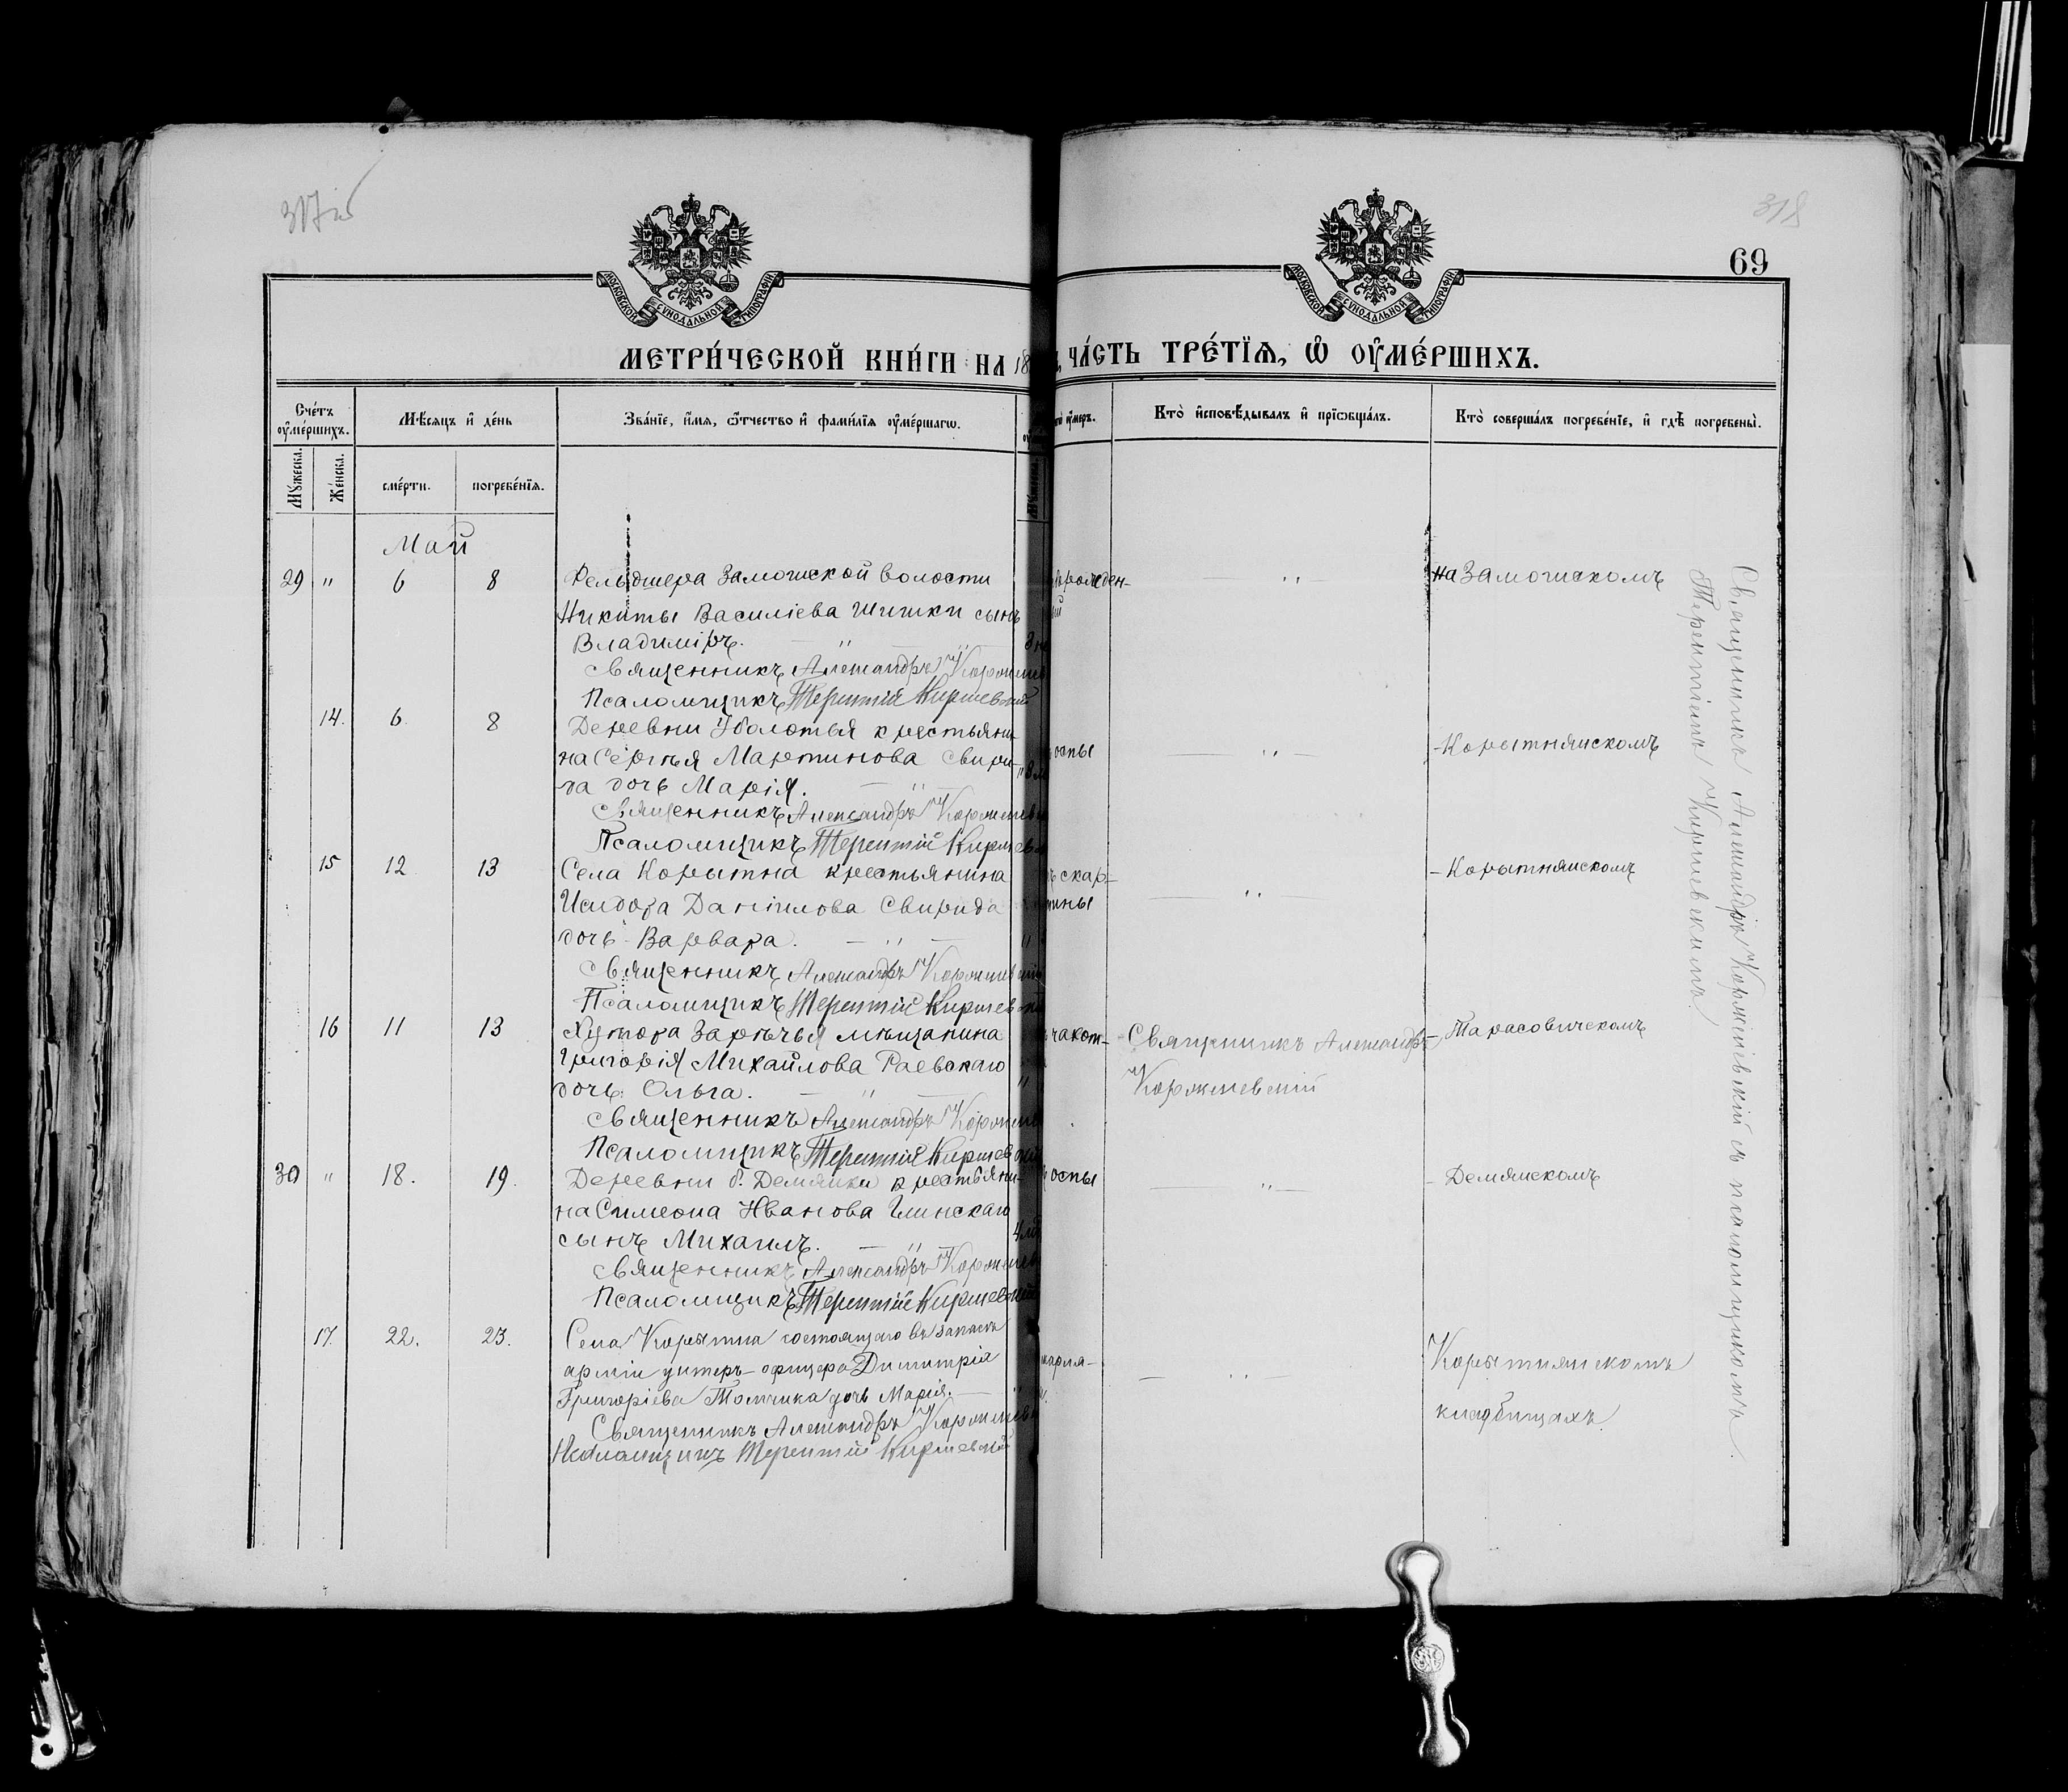 317об
318
69
МОСКОВСКОЙ СѴНОДАЛЬНОЙ ТИПОГРАФІИ
МОСКОВСКОЙ СѴНОДАЛЬНОЙ ТИПОГРАФІИ
МЕТРИ́ЧЕСКОЙ КНИ́ГИ НА 18
ЧА́СТЬ ТРЕ́ТЇѦ, Ѡ҆ ОУ҆МЕ́РШИХЪ.
Сче́тъ оу҆ме́ршихъ.
Мѣ́сѧцъ и҆ де́нь
Зва́нїе, и҆́мѧ, ѻ҆́тчество и҆ фами́лїѧ оу҆ме́ршагѡ.
оу҆́меръ.
Кто̀ и҆сповѣ́дывалъ и҆ прїѡбща́лъ.
Кто̀ соверша́лъ погребе́нїе, и҆ гдѣ̀ погребены̀.
Мꙋ́жеска.
Же́нска.
сме́рти.
погребе́нїѧ.
Май
29 " 6 8 Фельдшера Замошской волости
Никиты Василіева Шишки сынъ
Владиміръ. — " — "
Священникъ Александръ Корженев
Псаломщикъ Терентій Киршевскій
рожден-
"
на Замошскомъ
14. 6 8 Деревни Уболотья крестьяни-
на Сергѣя Мартинова Свири-
да дочь Марія. — "
Священникъ Александръ Коржнев
Псаломщикъ Терентій Киршев
оспы
— " —
- Корытнянскомъ
15 12 13 Села Корытна крестьянина
Исидора Даніилова Свирида
дочь Варвара. — " —
Священникъ Александръ Коржнев
Псаломщикъ Терентій Киршев
скар-
тины
— "
- Корытнянскомъ
16 11 13 Хутора Зарѣчья мѣщанина
Григорія Михайлова Раевскаго
дочь Ольга. — " —
Священникъ Александръ Коржнев
Псаломщикъ Терентій Киршев
чахот-
- Священникъ Александръ
Коржневскій
- Тарасовическомъ
30 " 18. 19. Деревни б. Демянки крестьяни-
на Симеона Иванова Глинскаго
сынъ Михаилъ. — " —
Священникъ Александръ Коржнев
Псаломщикъ Терентій Киршевскій
оспы
— " —
- Демянскомъ
17. 22. 23. Села Корытна состоящаго въ запасѣ
арміи унтеръ-офицера Димитрія
Григоріева Толпика дочь Марія. —
Священникъ Александръ Коржнев
Псаломщикъ Терентій Киршевскій
— " —
Корытнянскомъ
кладбищахъ.
Священникъ Александръ Корженевскій съ псаломщикомъ
Терентіемъ Киршевскимъ.